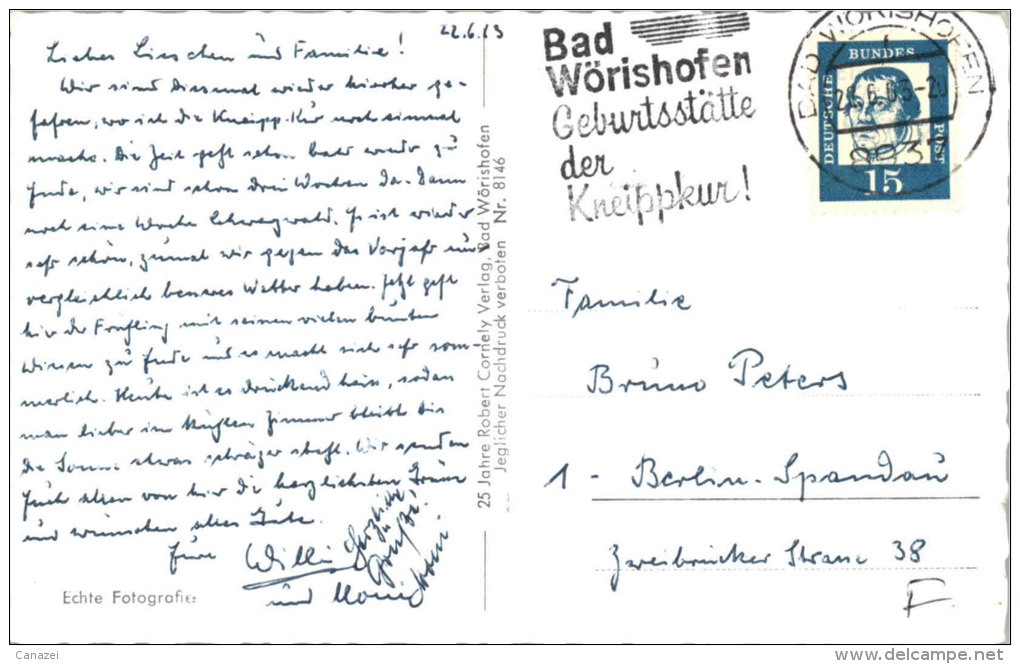 22.6.63
Liebes Lieschen und Familie!
Wir sind diesmal wieder hierher ge-
fahren, wo ich die Kneipp-Kur noch einmal
mache. Die Zeit geht schon bald wieder zu
Ende, wir sind schon drei Wochen da. Dann
noch eine Woche Schwarzwald. Es ist wieder
sehr schön, zumal wir gegen das Vorjahr un-
vergleichlich besseres Wetter haben. Jetzt geht
hier der Frühling mit seinen vielen bunten
Wiesen zu Ende und es macht sich sehr som-
merlich. Heute ist es drückend heiss, sodass
man lieber im kühlen Zimmer bleibt bis
die Sonne etwas schräger steht. Wir senden
Euch allen von hier die herzlichsten Grüsse
und wünschen alles Gute.
Eure Willi
und
Herzliche
Grüße!
Echte Fotografie
25 Jahre Robert Cornely Verlag, Bad Wörishofen
Jeglicher Nachdruck verboten Nr. 8146
Bad
Wörishofen
Geburtsstätte
der
Kneippkur!
BAD WÖRISHOFEN
8937
DEUTSCHE
BUNDES
POST
15
Familie
Bruno Peters
1 - Berlin-Spandau
Zweibrücker Strasse 38
F
Canazei
www.delcampe.net